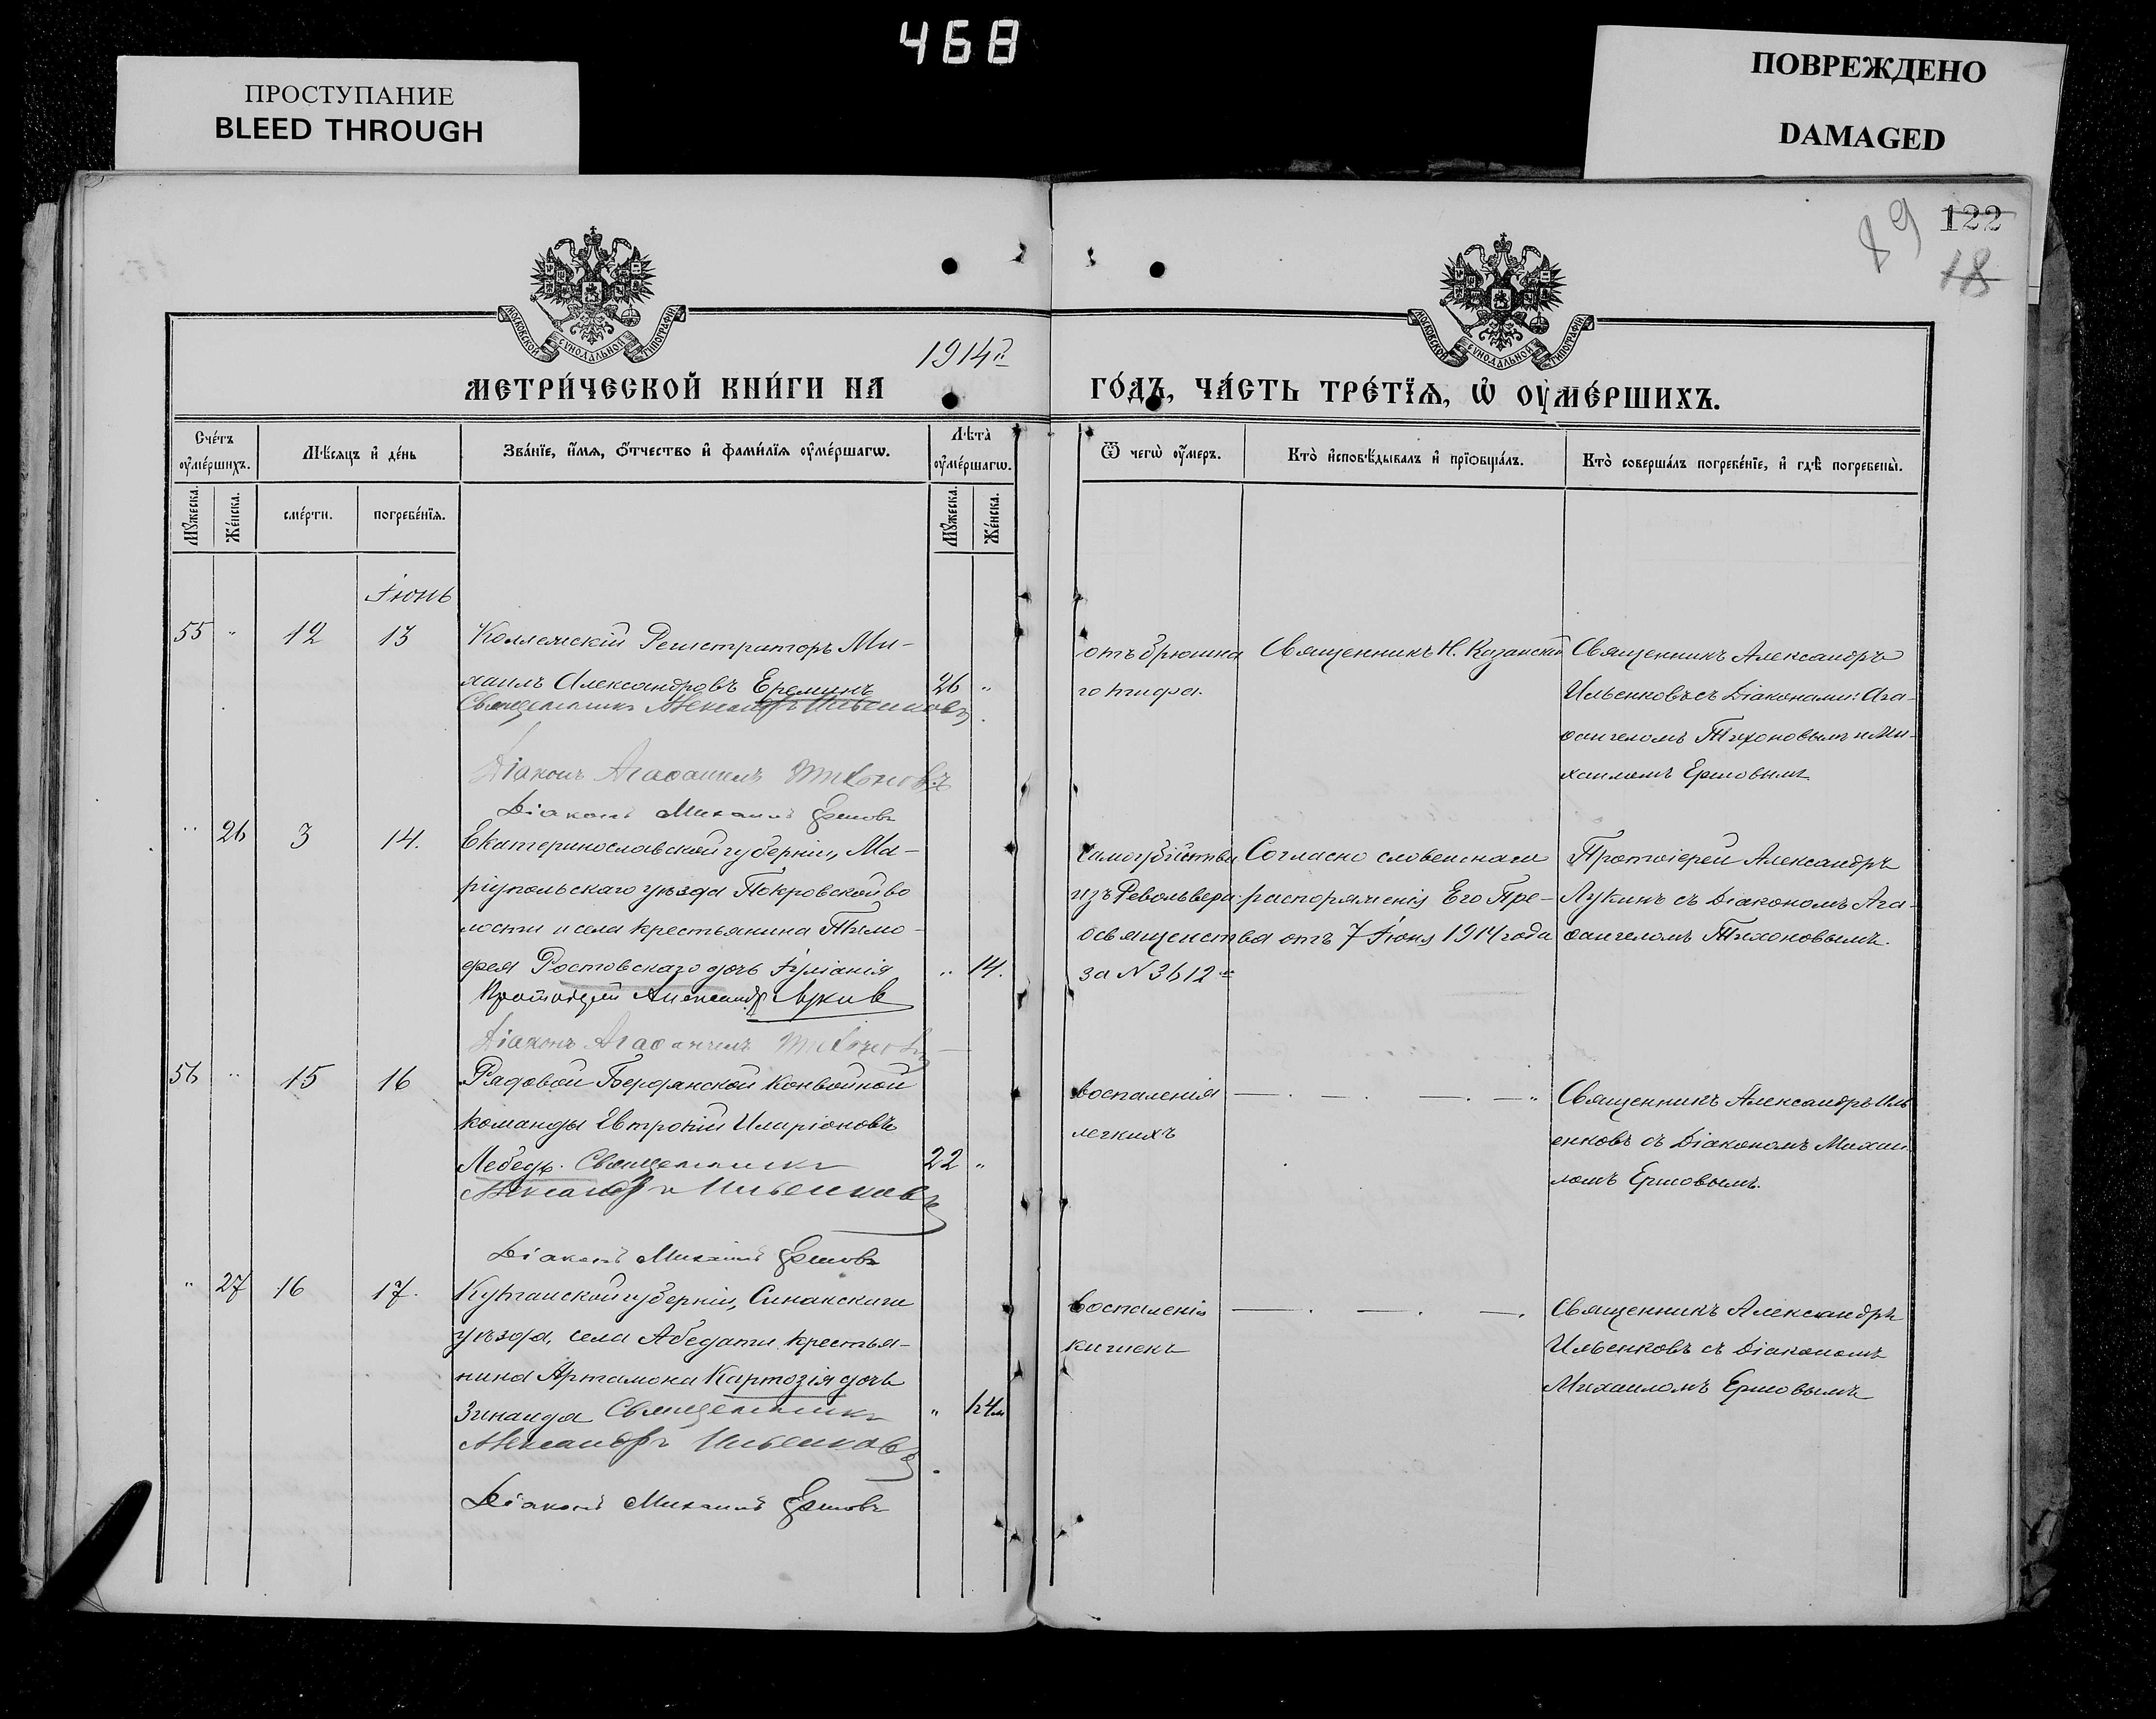 468
ПРОСТУПАНИЕ
BLEED THROUGH
ПОВРЕЖДЕНО
DAMAGED
89 122
18
МОСКОВСКОЙ СѴНОДАЛЬНОЙ ТИПОГРАФІИ
МОСКОВСКОЙ СѴНОДАЛЬНОЙ ТИПОГРАФІИ
1914 г.
МЕТРИ́ЧЕСКОЙ КНИ́ГИ НА
ГО́ДЪ, ЧА́СТЬ ТРЕ́ТІѦ, Ѡ҆ ОУ҆МЕ́РШИХЪ.
Сче́тъ оу҆ме́ршихъ.
Мѣ́сяцъ и҆ де́нь
Зва́нїе, и҆́мѧ, ѻ҆́тчество и҆ фами́лїѧ оу҆ме́ршагѡ.
Лѣ́та оу҆ме́ршагѡ.
Ѿ чегѡ̀ оу҆́меръ.
Кто̀ и҆сповѣ́дывалъ и҆ прїѡбща́лъ.
Кто̀ соверша́лъ погребе́нїе, и҆ гдѣ̀ погребены̀.
Мꙋ́жеска.
Же́нска.
сме́рти.
погребе́нїѧ.
Мꙋ́жеска.
Же́нска.
Іюнь
55 " 12 13 Коллежскій Регистраторъ Ми-
хаилъ Александровъ Ереминъ 26 "
Священникъ Александръ Ильенковъ
Діаконъ Агаѳангелъ Тихоновъ
Діаконъ Михаилъ Ершовъ
отъ брюшна
го тифа.
Священникъ Н. Казанскій
Священникъ Александръ
Ильенковъ съ Діаконами: Ага-
ѳангеломъ Тихоновымъ и Ми-
хаиломъ Ершовымъ
" 26 3 14. Екатеринославской губерніи, Ма-
ріупольскаго уѣзда Покровской во
лости и села крестьянина Тимо-
фея Ростовскаго дочь Іуліанія " 14.
Протоіерей Александръ Лукинъ
Діаконъ Агаѳангелъ Тихоновъ
самоубійства
изъ Револьвера.
Согласно словеснаго
распоряженія Его Пре-
освященства отъ 7 Іюня 1914 года
за N 3612
Протоіерей Александръ
Лукинъ съ Діакономъ Ага-
ѳангеломъ Тихоновымъ.
56 " 15 16 Рядовой Бердянской Конвойной
команды Евтропій Иларіоновъ
Лебедь. Священникъ 22 "
Александръ Ильенковъ
Діаконъ Михаилъ Ершовъ
воспаленія
легкихъ
Священникъ Александръ Иль
енковъ съ Діакономъ Михаи
ломъ Ершовымъ.
" 27 16 17. Кутаиской губерніи, Синакскаго
уѣзда, села Абедати крестья-
нина Артамона Картозія дочь
Зинаида Священникъ "
Александръ Ильенковъ
Діаконъ Михаилъ Ершовъ
воспаленія
кишекъ
Священникъ Александръ
Ильенковъ съ Діакономъ
Михаиломъ Ершовымъ